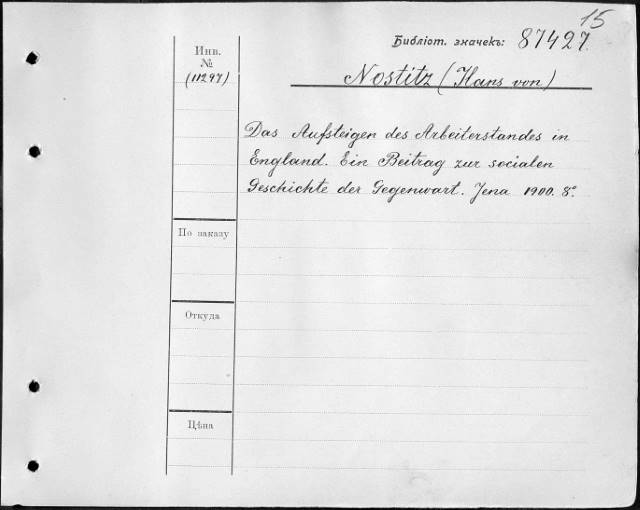 15
Библіот. значекъ: 87427.
Инв.
№
(11297)
Nostitz (Hans von)
Das Aufsteigen des Arbeiterstandes in
England. Ein Beitrag zur socialen
Geschichte der Gegenwart. Jena 1900. 8°.
По заказу
Откуда
Цѣна